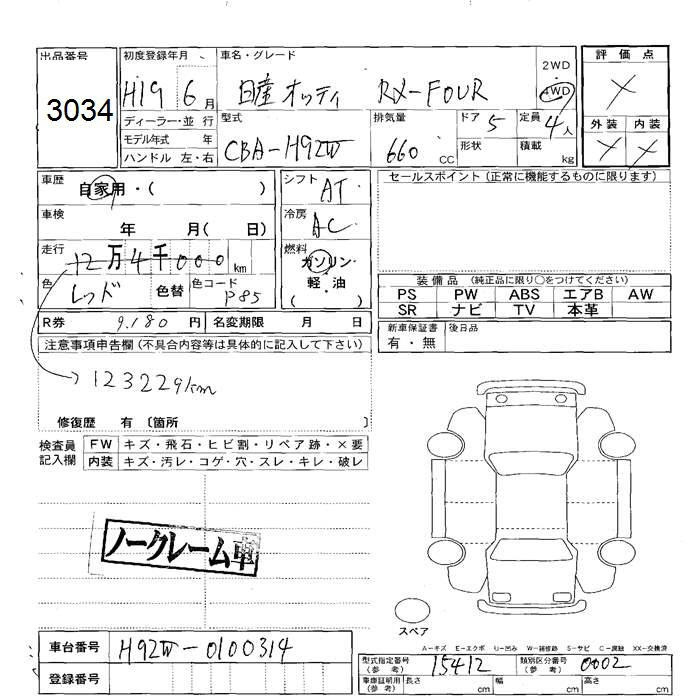 出品番号
3034
初度登録年月
H19 6月
車名・グレード
日産 オッティ RX-FOUR
2WD
4WD
評価点
×
外装 内装
× ×
ディーラー・並行
モデル年式 年
ハンドル 左・右
型式
CBA-H92W
排気量
660 CC
ドア 5
形状
定員 4人
積載 kg
車歴
自家用・( )
車検
年 月( 日)
走行
12万4千000 km
色 レッド 色替 色コード P85
シフト AT
冷房 AC
燃料
ガソリン・
軽・油
( )
セールスポイント(正常に機能するものに限ります)
装備品(純正品に限り○をつけてください)
PS PW ABS エアB AW
SR ナビ TV 本革
R券 9,180円 名変期限 月 日
新車保証書 後日品
有・無
注意事項申告欄(不具合内容等は具体的に記入して下さい)
→123229km
修復歴 有 〔箇所 〕
検査員
記入欄
FW キズ・飛石・ヒビ割・リペア跡・×要
内装 キズ・汚レ・コゲ・穴・スレ・キレ・破レ
ノークレーム車
スペア
車台番号 H92W-0100314
登録番号
A-キズ E-エクボ U-凹み W-補修跡 S-サビ C-腐蝕 XX-交換済
型式指定番号(参考) 15412 類別区分番号(参考) 0002
車庫証明用(参考) 長さ cm 幅 cm 高さ cm